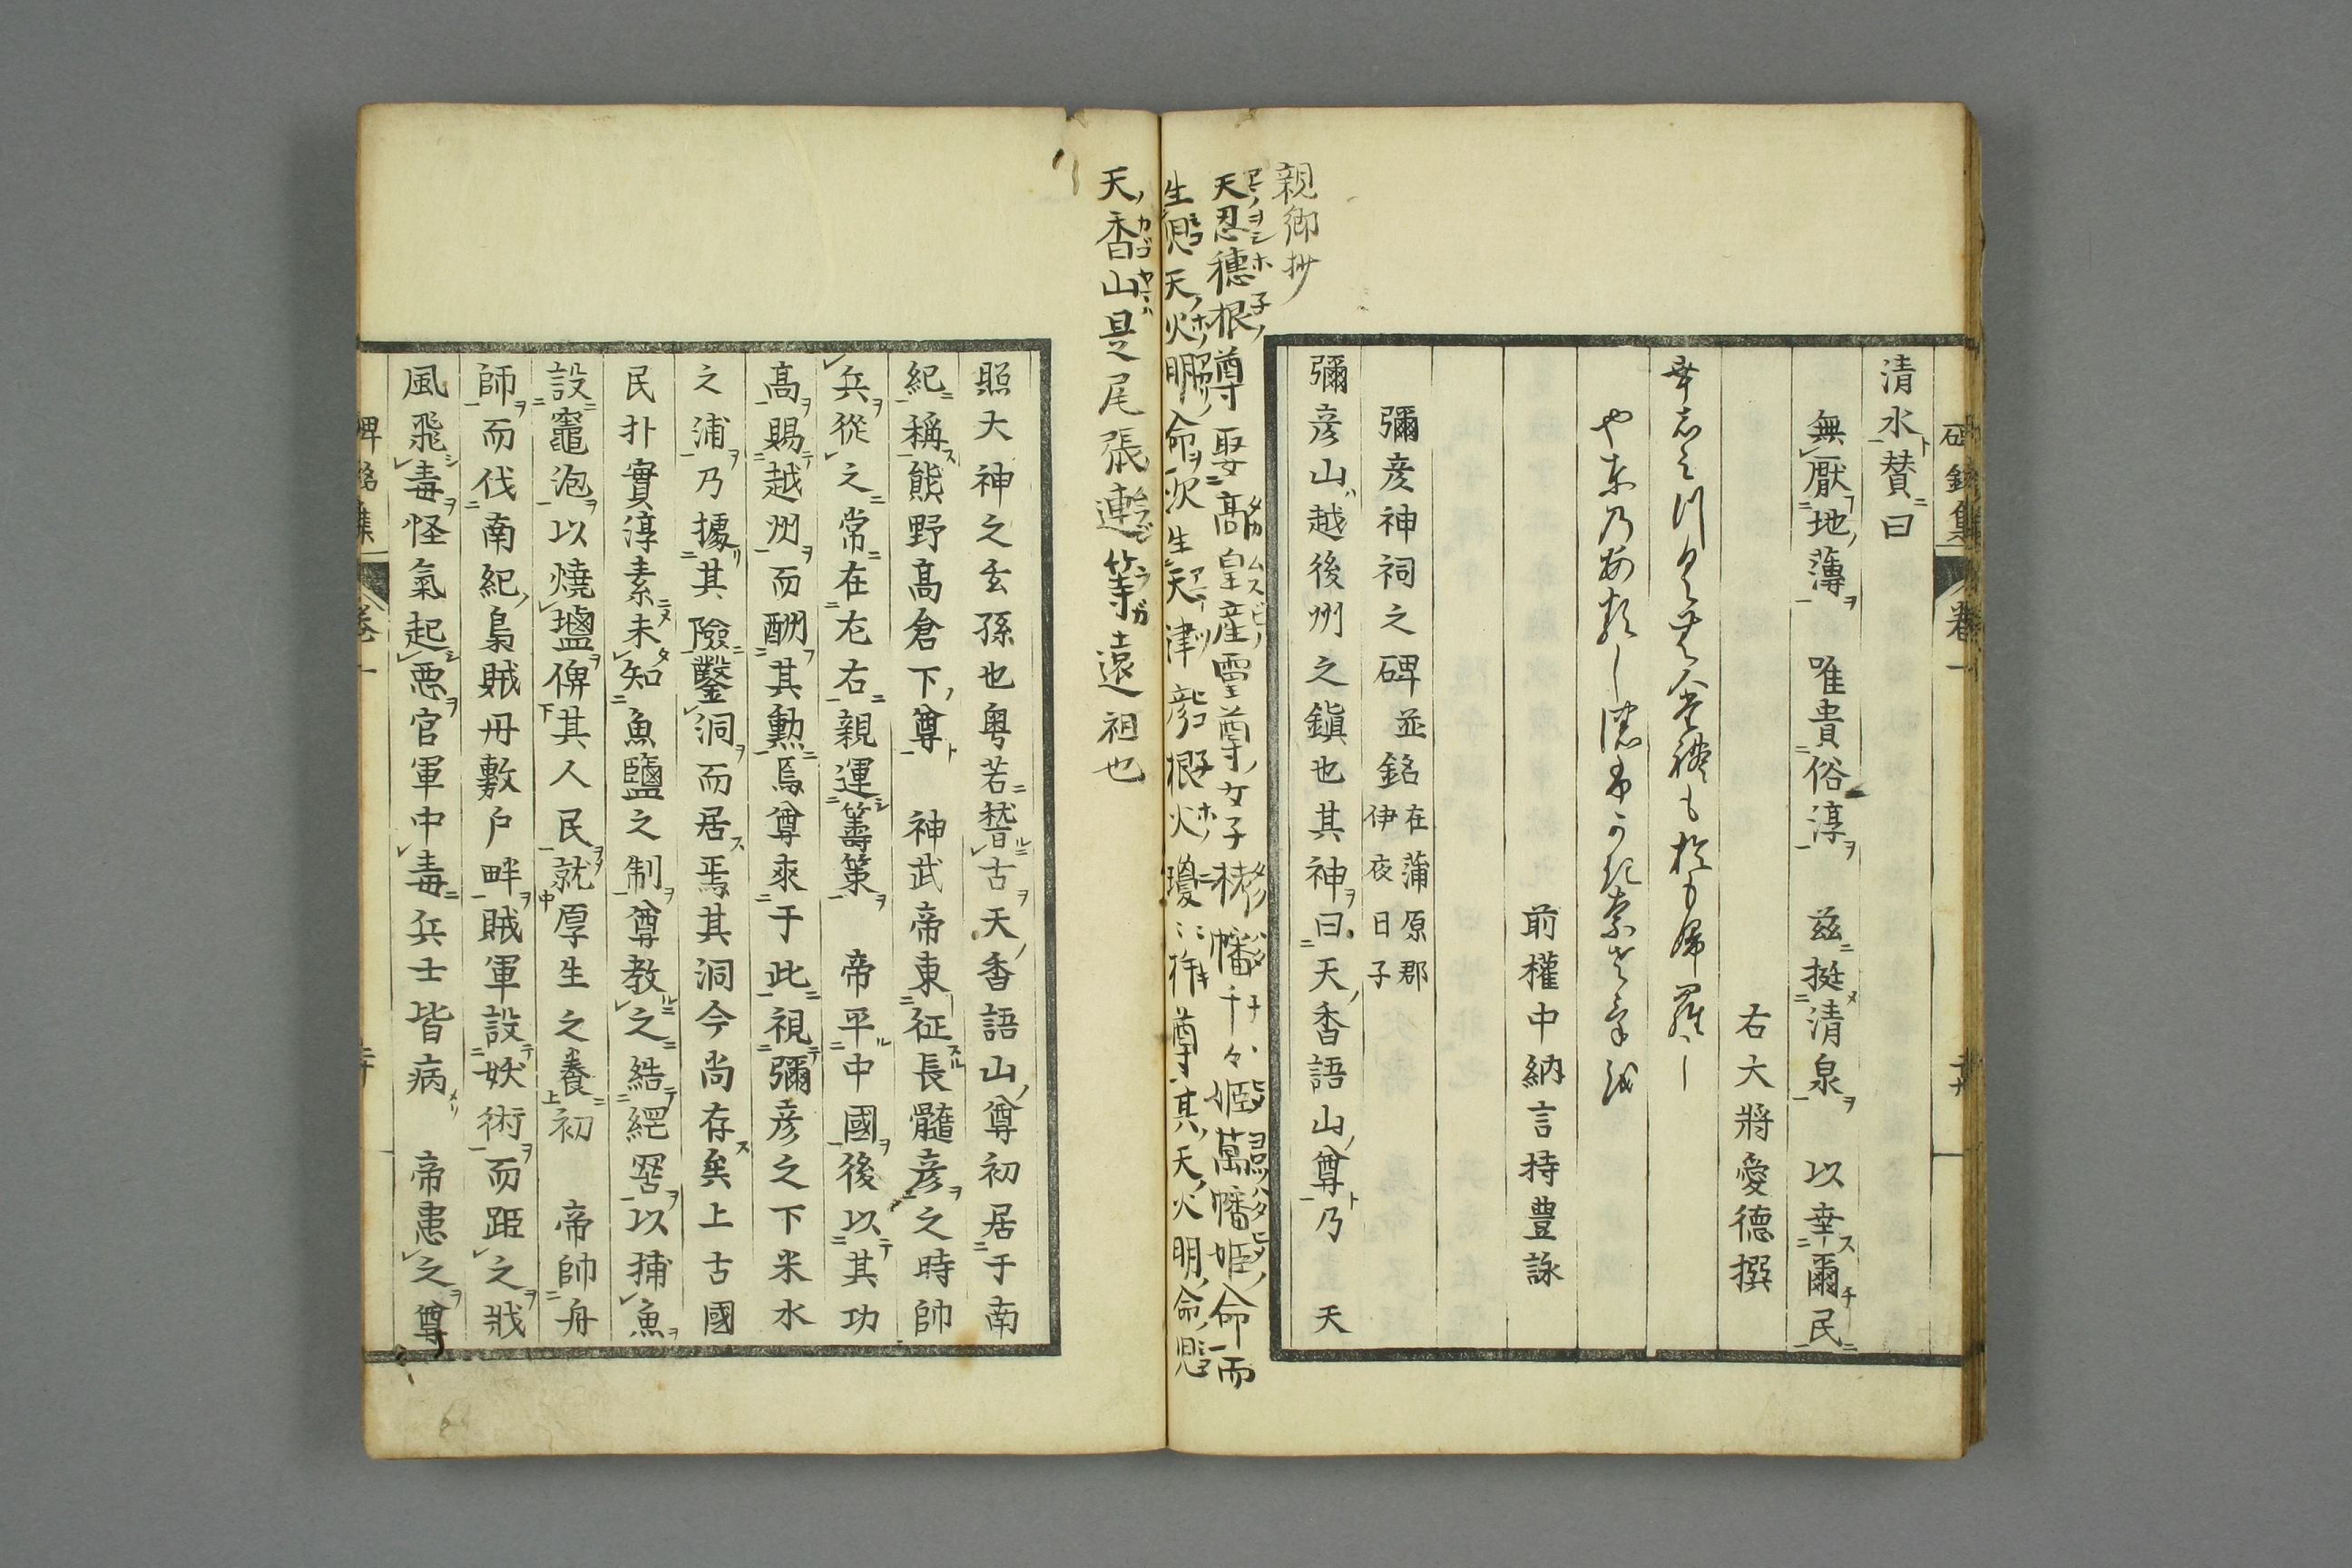 清水賛曰
無厭地薄　唯貴俗淳　茲挺清泉　以幸爾民
右大將愛德撰
前權中納言持豊詠
彌彦神祠之碑並銘 在蒲原郡伊夜日子
彌彦山越後州之鎭也其神曰天香語山尊乃　天
親鄉抄
天忍穗根尊娶高皇産霊尊女子栲幡千々姫萬幡姫命而
生児天火明命次生天津彦根火瓊々杵尊其天火明命児
天香山是尾張連等遠祖也
照大神之玄孫也粤若稽古天香語山尊初居于南
紀稱熊野高倉下尊　神武帝東征長髓彦之時帥
兵從之常在左右親運籌策　帝平中國後以其功
高賜越州而酬其勲焉尊來于此視彌彦之下米水
之浦乃據其險鑿洞而居焉其洞今尚存矣上古國
民朴實淳素未知魚鹽之制尊教之結網罟以捕魚
設竈泡以燒鹽俾其人民就厚生之養初　帝帥舟
師而伐南紀梟賊丹敷戸畔賊軍設妖術而距之戕
風飛毒怪氣起悪官軍中毒兵士皆病　帝患之尊
碑銘集　卷一